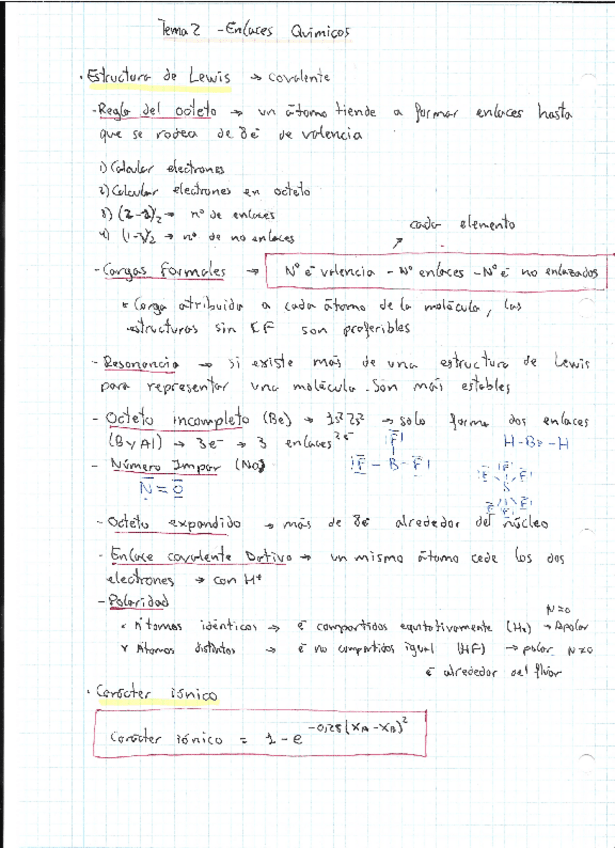 Tema 2 - Enlaces Químicos
· Estructura de Lewis → covalente
- Regla del octeto → un átomo tiende a formar enlaces hasta
que se rodea de 8e⁻ de valencia
1) Calcular electrones
2) Calcular electrones en octeto
3) (2-1)/2 → nº de enlaces
4) (1-3)/2 → nº de no enlaces
cada elemento
- Cargas formales → Nº e⁻ valencia - Nº enlaces - Nº e⁻ no enlazados
* Carga atribuida a cada átomo de la molécula, las
estructuras sin CF son preferibles
- Resonancia → si existe más de una estructura de Lewis
para representar una molécula. Son más estables
- Octeto incompleto (Be) → 1s²2s² → solo forma dos enlaces
(B y Al) → 3e⁻ → 3 enlaces
H-Be-H
F - B - F
F
- Número Impar (No)
N=O
- Octeto expandido → más de 8e⁻ alrededor del núcleo
- Enlace covalente Dativo → un mismo átomo cede los dos
electrones → con H⁺
- Polaridad
* Átomos idénticos → e⁻ compartidos equitativamente (H₂) → Apolar
* Átomos distintos → e⁻ no compartidos igual (HF) → polar
e⁻ alrededor del flúor
· Carácter iónico
Carácter iónico = 1 - e^-0,25(XA-XB)²